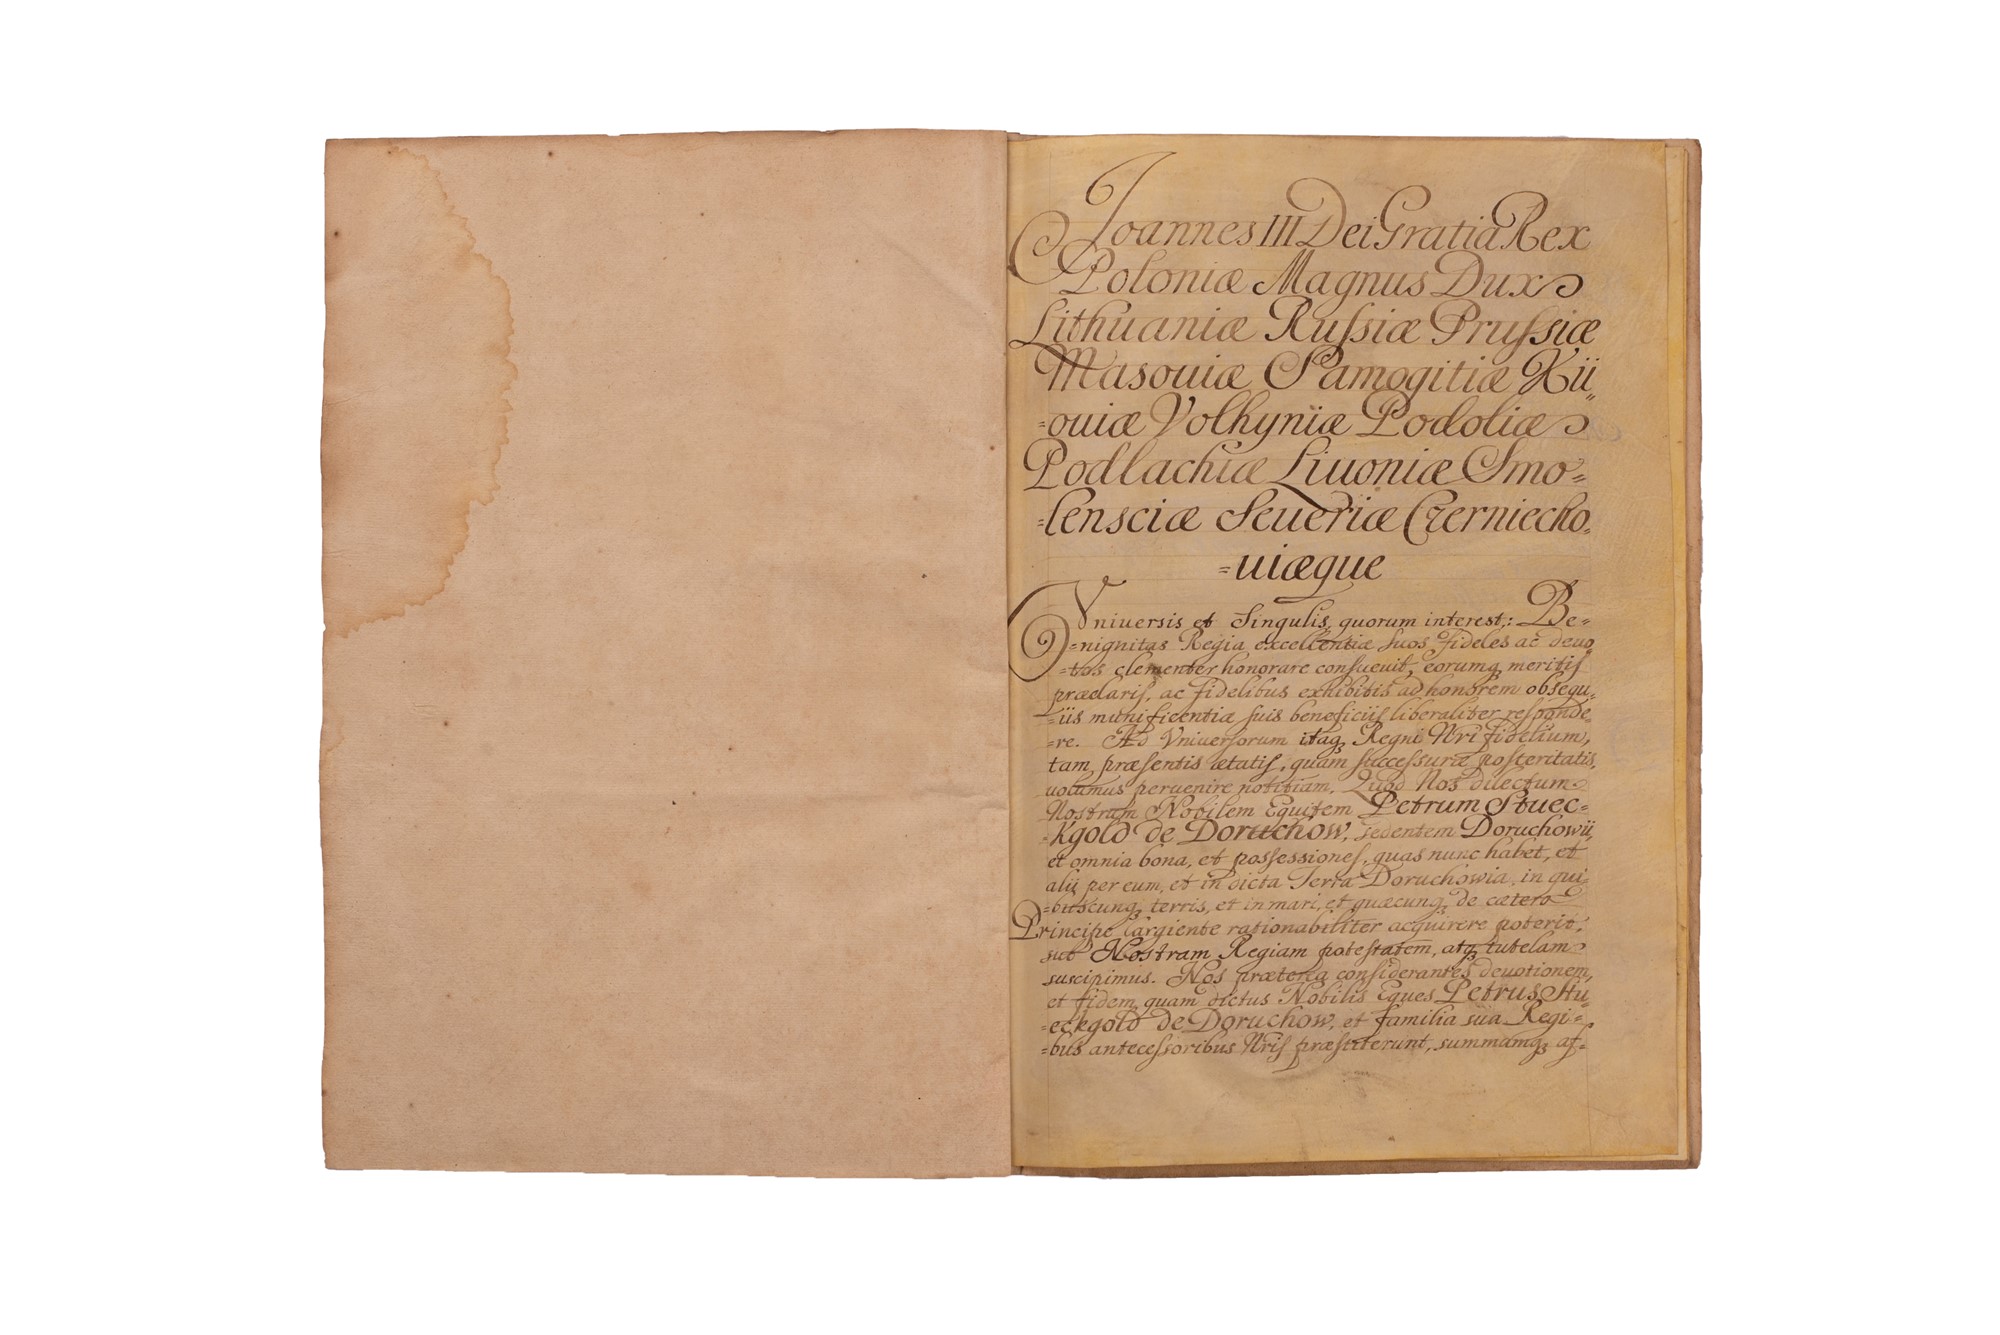 Joannes III Dei Gratia Rex
Poloniæ Magnus Dux
Lithuaniæ Rußiæ Prußiæ
Masouiæ Samogitiæ Kii=
=ouiæ Volhyniæ Podoliæ
Podlachiæ Liuoniæ Smo=
=lensciæ Seueriæ Czerniecho=
=uiæque
Vniuersis et Singulis, quorum interest,: Be=
=nignitas Regia excellentiæ suos fideles ac deuo
=tos clementer honorare consueuit, eorumq; meritis
præclaris, ac fidelibus exhibitis ad honorem obsequ=
=iis munificentiæ suis beneficiis liberaliter responde=
=re. Ad Vniuersorum itaq; Regni Nri fidelium,
tam, præsentis ætatis, quam successuræ posteritatis,
volumus peruenire notitiam. Quod Nos dilectum
Nostrum Nobilem Equitem Petrum Stuec=
=kgold de Doruchow, sedentem Doruchowii,
et omnia bona, et possessiones, quas nunc habet, et
alij per eum, et in dicta Terra Doruchowia, in qui=
=buscunq; terris, et in mari, et quæcunq; de cætero
Principe largiente rationabiliter acquirere poterit,
sub Nostram Regiam potestatem, atq; tutelam
suscipimus. Nos præterea considerantes deuotionem,
et fidem, quam dictus Nobilis Eques Petrus Stu=
=eckgold de Doruchow, et familia sua Regi=
=bus antecessoribus Nris præstiterunt, summamq; af=